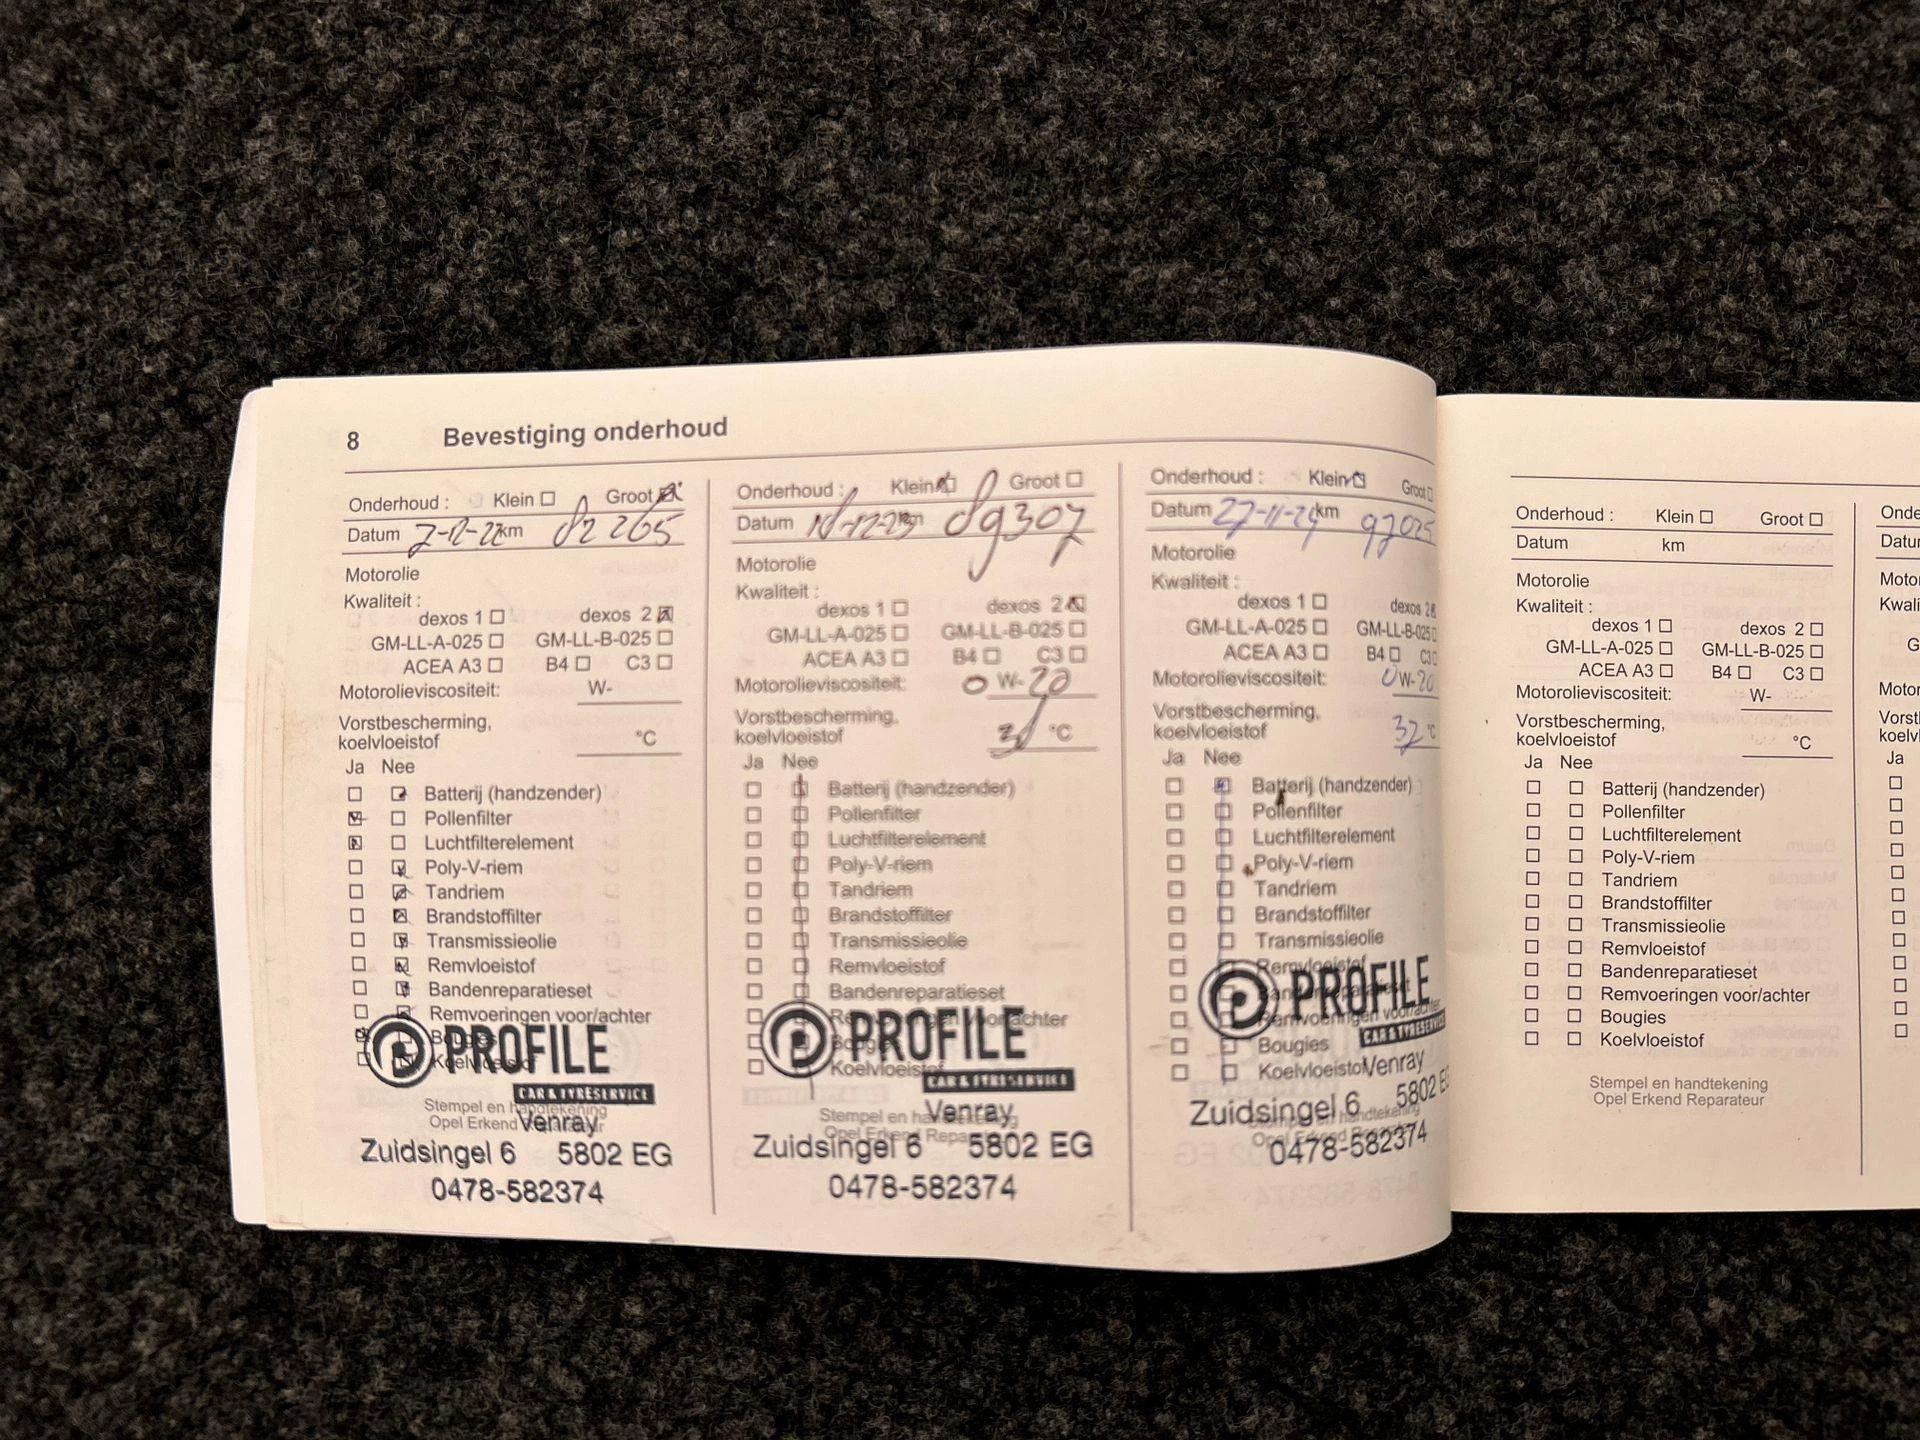 8 Bevestiging onderhoud
Onderhoud : Klein Groot
Datum 7-12-22 km 82265
Motorolie
Kwaliteit :
dexos 1 dexos 2
GM-LL-A-025 GM-LL-B-025
ACEA A3 B4 C3
Motorolieviscositeit: W-
Vorstbescherming,
koelvloeistof °C
Ja Nee
Batterij (handzender)
Pollenfilter
Luchtfilterelement
Poly-V-riem
Tandriem
Brandstoffilter
Transmissieolie
Remvloeistof
Bandenreparatieset
Remvoeringen voor/achter
Bougies
Koelvloeistof
PROFILE
CAR & TYRESERVICE
Stempel en handtekening
Opel Erkend Reparateur
Venray
Zuidsingel 6 5802 EG
0478-582374
Onderhoud : Klein Groot
Datum km 89307
Motorolie
Kwaliteit :
dexos 1 dexos 2
GM-LL-A-025 GM-LL-B-025
ACEA A3 B4 C3
Motorolieviscositeit: 0 W-20
Vorstbescherming,
koelvloeistof °C
Ja Nee
Batterij (handzender)
Pollenfilter
Luchtfilterelement
Poly-V-riem
Tandriem
Brandstoffilter
Transmissieolie
Remvloeistof
Bandenreparatieset
Remvoeringen voor/achter
Bougies
Koelvloeistof
PROFILE
CAR & TYRESERVICE
Stempel en handtekening
Opel Erkend Reparateur
Venray
Zuidsingel 6 5802 EG
0478-582374
Onderhoud : Klein Groot
Datum 27-11-24 km 97025
Motorolie
Kwaliteit :
dexos 1 dexos 2
GM-LL-A-025 GM-LL-B-025
ACEA A3 B4 C3
Motorolieviscositeit: 0 W-20
Vorstbescherming,
koelvloeistof 32 °C
Ja Nee
Batterij (handzender)
Pollenfilter
Luchtfilterelement
Poly-V-riem
Tandriem
Brandstoffilter
Transmissieolie
Remvloeistof
Bandenreparatieset
Remvoeringen voor/achter
Bougies
Koelvloeistof
PROFILE
CAR & TYRESERVICE
Venray
Zuidsingel 6 5802 EG
0478-582374
Onderhoud : Klein Groot
Datum km
Motorolie
Kwaliteit :
dexos 1 dexos 2
GM-LL-A-025 GM-LL-B-025
ACEA A3 B4 C3
Motorolieviscositeit: W-
Vorstbescherming,
koelvloeistof °C
Ja Nee
Batterij (handzender)
Pollenfilter
Luchtfilterelement
Poly-V-riem
Tandriem
Brandstoffilter
Transmissieolie
Remvloeistof
Bandenreparatieset
Remvoeringen voor/achter
Bougies
Koelvloeistof
Stempel en handtekening
Opel Erkend Reparateur
Ja